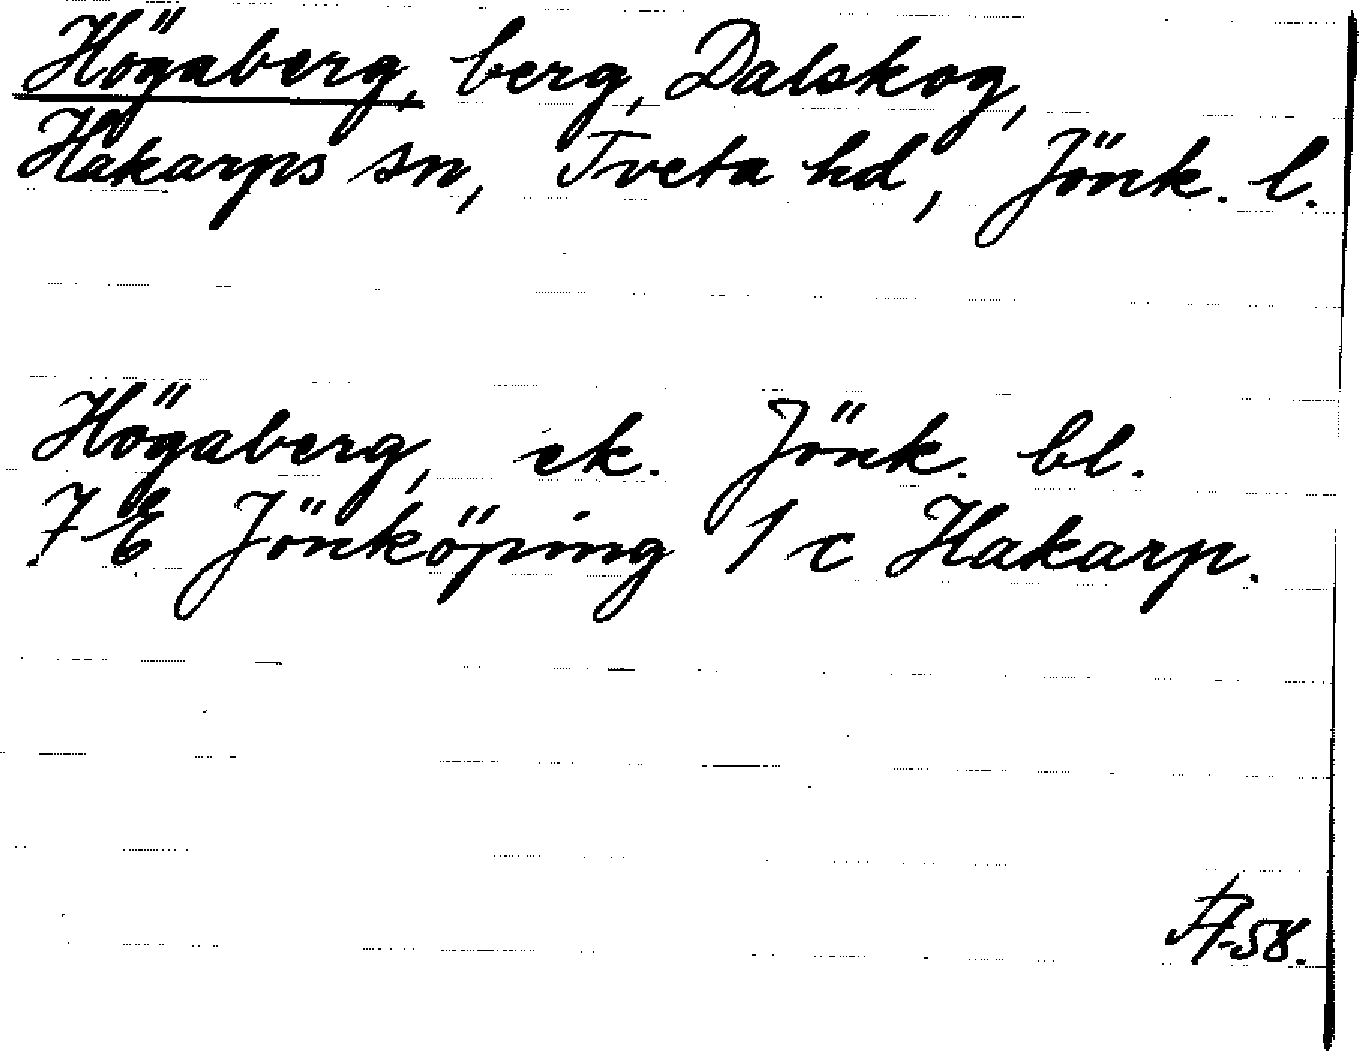 Högaberg, berg, Dalskog,
Hakarps sn, Tveta hd, Jönk. l.
Högaberg, ek. Jönk. bl.
7 E Jönköping 1 c Hakarp.
-58.